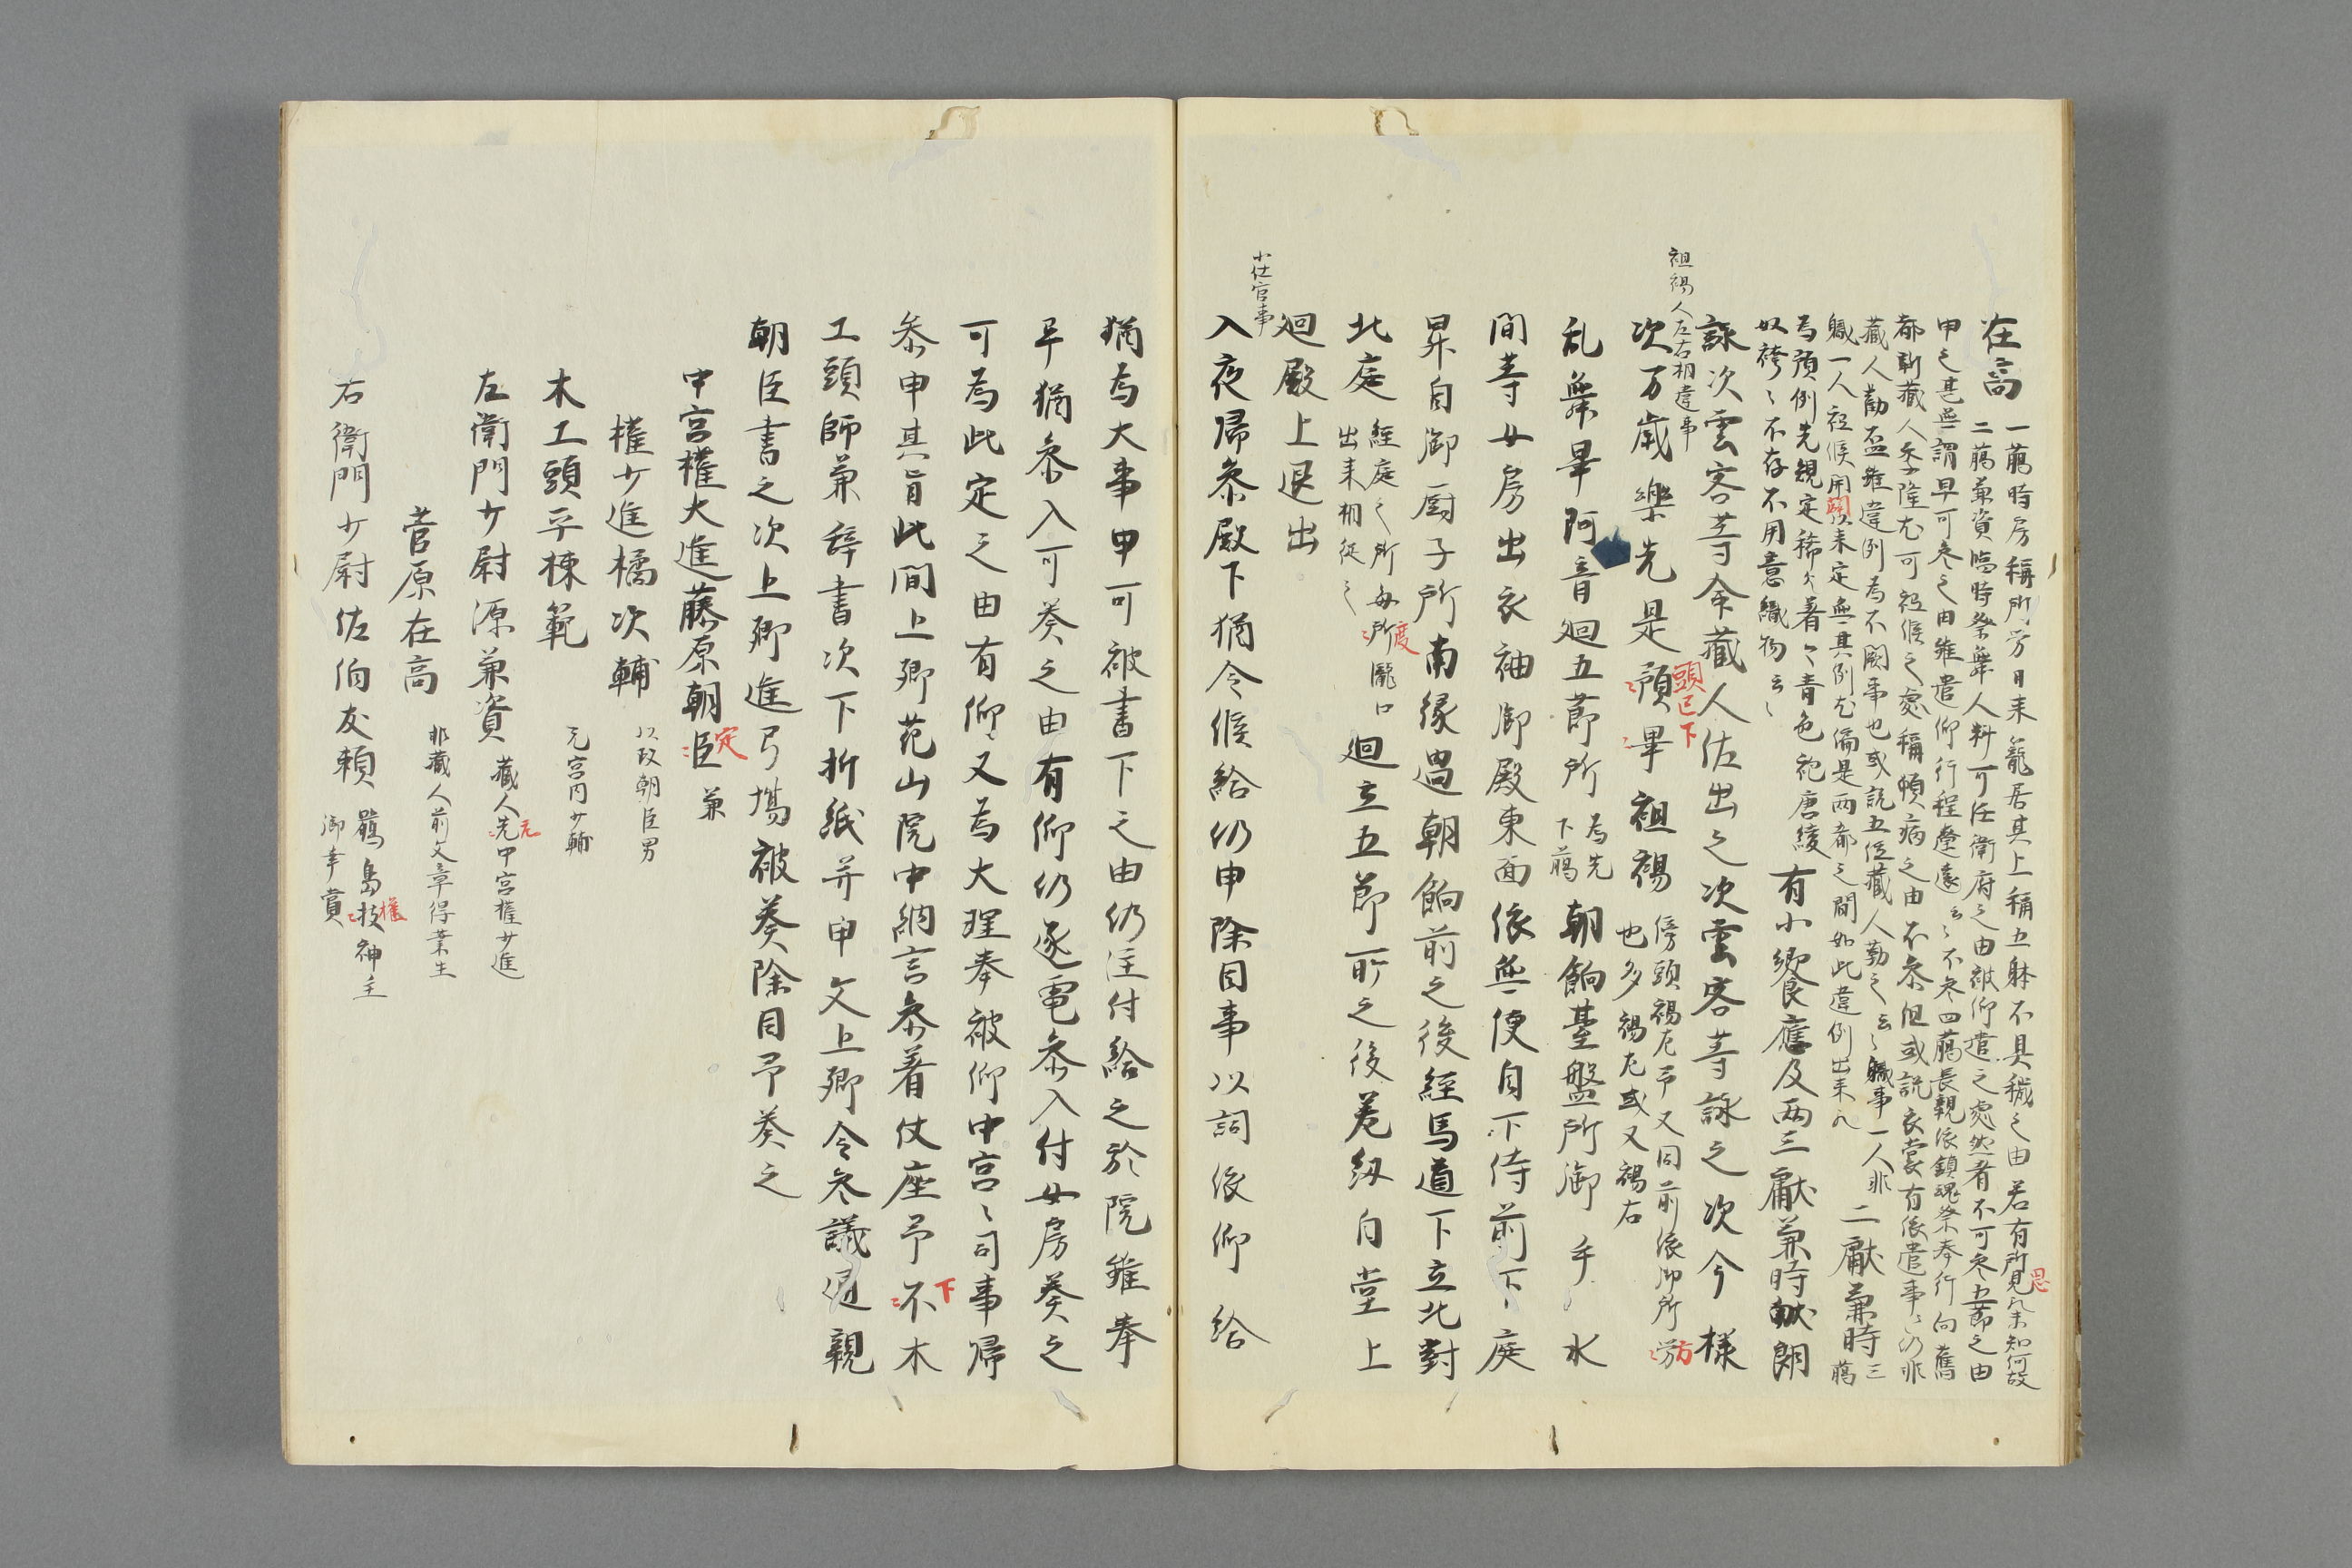 在高
一﨟時房称所労日来籠居其上称五躰不具穢之由若有所見歟未知何故
思
二﨟兼資臨時祭舞人料可任衛府之由被仰遣之処然者不可参五節之由
申之甚無謂早可参之由雖遣仰行程遼遠云々不参四﨟長親依鎮魂祭奉行向旧
都新蔵人季隆尤可祗候之処称頓病之由不参但或説衣裳有依遣事仍非
蔵人勧盃雖違例為不闕事也或説五位蔵人勤之云々職事一人非
職一人祗候開闔以来定無其例尤偏是両都之間如此違例出来
二献兼時三﨟
為預例先規定稀欠著々青色袍唐綾
奴袴々不存不用意織物云々
有小饗応及両三献兼時献朗
詠次雲客等令蔵人佐出之次雲客等詠之次今様
袒裼人左右相違事
次万歳楽先是預畢袒裼
頭已下
傍頭裼左予又同前依御所労
方
也多裼左或又裼右
乱舞畢阿音廻五節所
為先下﨟
朝餉台盤所御手水
間等女房出衣袖御殿東面依無便自下侍前下庭
昇自御厨子所南縁過朝餉前之後経馬道下立北対
北庭
経庭之所毎所滝口
度
出来相従之
廻立五節所之後差紐自堂上
廻殿上退出
小仕官事
入夜帰参殿下猶令候給仍申除目事以詞依仰給
猶為大事由可被書下之由仍注付給之於院雖奉
平猶参入可奏之由有仰仍逐電参入付女房奏之
可為此定之由有仰又為大理奉被仰中宮々司事帰
参申其旨此間上卿花山院中納言参着仗座予不木
下
工頭師兼辞書次下折紙并申文上卿令参議退親
朝臣書之次上卿進弓場被奏除目予奏之
中宮権大進藤原朝臣
定
兼
権少進橘次輔
以政朝臣男
木工頭平棟範
元宮内少輔
左衛門少尉源兼資
蔵人先中宮権少進
元
菅原在高
非蔵人前文章得業生
右衛門少尉佐伯友頼
厳島技神主
権
御幸賞